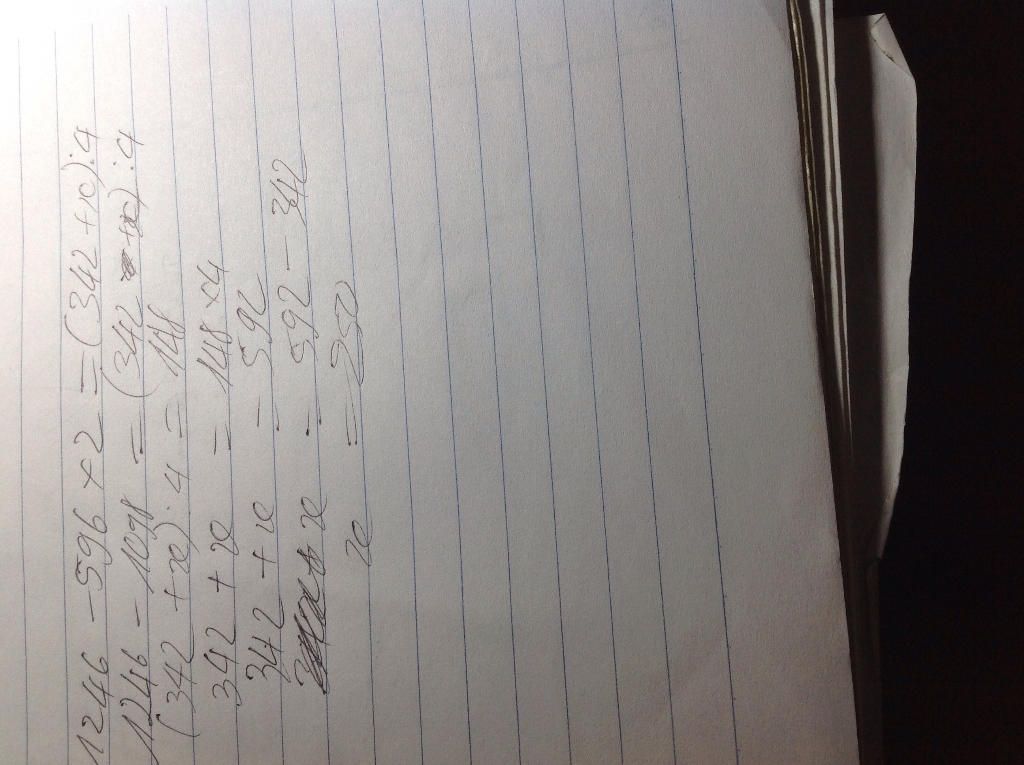 1246 - 596 × 2 = (342 + x) : 4
1246 - 1098 = (342 + x) : 4
(342 + x) : 4 = 148
342 + x = 148 × 4
342 + x = 592
x = 592 - 342
x = 250